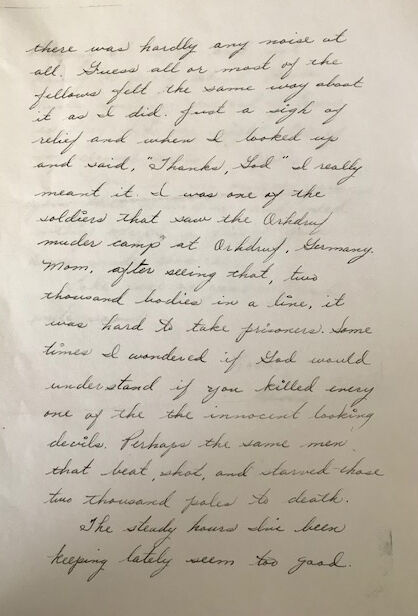 there was hardly any noise at
all. Guess all or most of the
fellows felt the same way about
it as I did. Just a sigh of
relief and when I looked up
and said, "Thanks, God" I really
meant it. I was one of the
soldiers that saw the Orhdruf
muder camp" at Orhdruf, Germany.
Mom, after seeing that, two
thousand bodies in a line, it
was hard to take prisoners. Some
times I wondered if God would
understand if you killed every
one of the the innocent looking
devils. Perhaps the same men
that beat, shot, and starved those
two thousand poles to death.
The steady hours I've been
keeping lately seem too good.